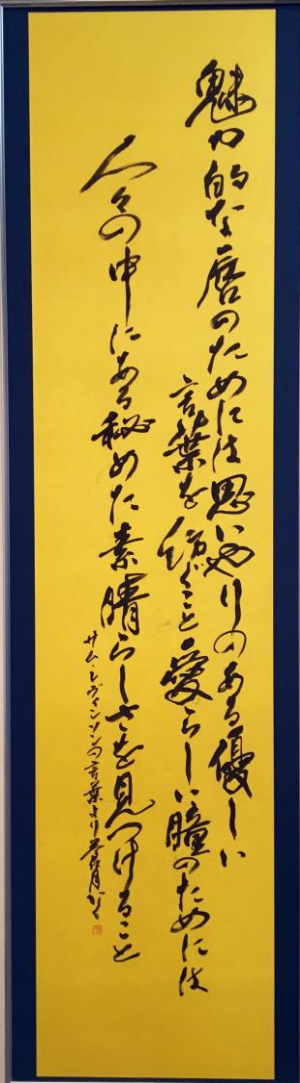 魅力的な唇のためには思いやりのある優しい
言葉を紡ぐこと愛らしい瞳のためには
人々の中にある秘めた素晴らしさを見つけること
サム・レヴィンソンの言葉より